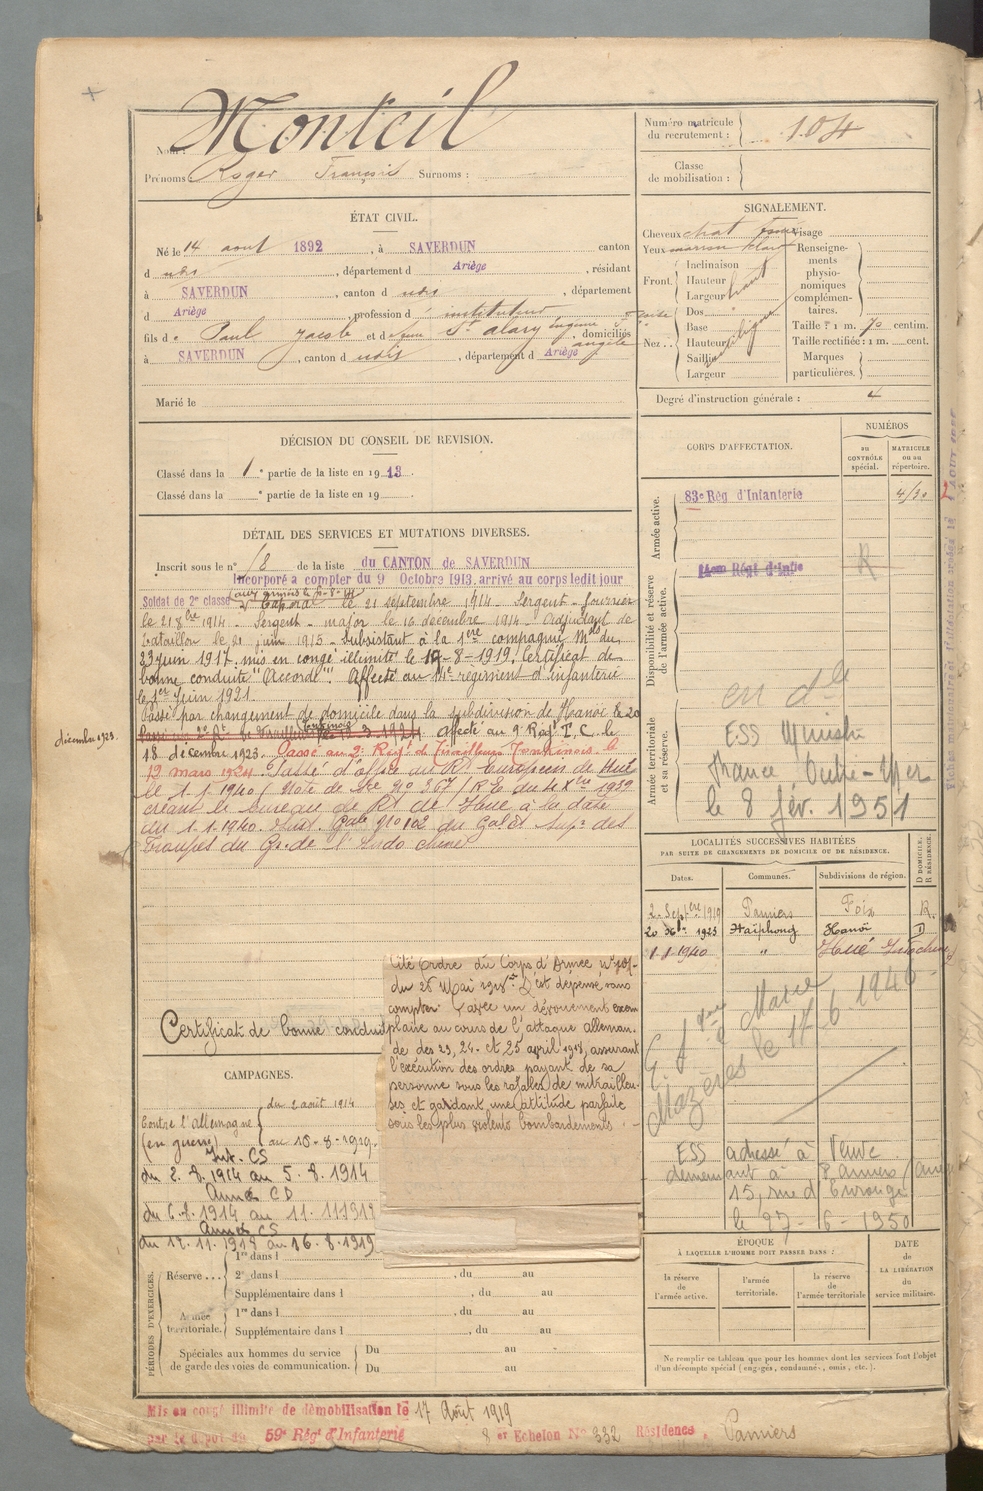 Monteil
Nom :
Prénoms : Roger François Surnoms :
Numéro matricule du recrutement : 104
Classe de mobilisation :
ÉTAT CIVIL.
Né le 14 aout 1892, à SAVERDUN canton
d udis, département d Ariège, résidant
à SAVERDUN, canton d udis, département
d Ariège, profession d' instituteur
fils de Paul Jacob et de feue St Alary Eugénie
Angèle domiciliés
à SAVERDUN, canton d udit, département d Ariège
Marié le
SIGNALEMENT.
Cheveux chat foncé Visage
Yeux marron clair
Front. Inclinaison
Hauteur haut
Largeur
Nez.. Dos
Base
Hauteur oblique
Saillie
Largeur
Renseignements physionomiques complémentaires.
Taille : 1 m. 70 centim.
Taille rectifiée : 1 m. cent.
Marques particulières.
Degré d'instruction générale : 4
DÉCISION DU CONSEIL DE REVISION.
Classé dans la 1e partie de la liste en 1913.
Classé dans la e partie de la liste en 19
DÉTAIL DES SERVICES ET MUTATIONS DIVERSES.
Inscrit sous le n° 18 de la liste du CANTON de SAVERDUN
Incorporé a compter du 9 Octobre 1913, arrivé au corps ledit jour
Soldat de 2e classe
Caporal le 21 septembre 1914. Sergent-fourrier
le 21 8bre 1914. Sergent-major le 16 décembre 1914. Adjudant de
bataillon le 21 juin 1915. Subsistant à la 1ère compagnie Mdo du
23 juin 1917. mis en congé illimité le 17-8-1919. Certificat de
bonne conduite "Accordé". Affecté au 14e régiment d'infanterie
le 1er Juin 1921.
Passé par changement de domicile dans la subdivision de Hanoï le 20
décembre 1923.
Affecté au 9e Regt I.C. le
18 décembre 1923. Passé au 2e Regt de Tirailleurs Tonkinois le
19 mars 1924. Passé d'office au Rt Européen de Hué
le 1.1.1940 (Note de Sce No 367/RE du 4 Xbre 1939
créant le bureau de Rt de Hué à la date
du 1.1.1940. du Gal Ct Supr des
Troupes du Gr. de l'Indo chine
CORPS D'AFFECTATION.
NUMÉROS
au CONTRÔLE spécial.
MATRICULE ou au répertoire.
Armée active.
83e Rég d'Infanterie
Disponibilité et réserve de l'armée active.
14em Régt d'Infie R
Armée territoriale et sa réserve.
en dle
ESS Ministre
France Outre-Mer
le 8 fév. 1951
LOCALITÉS SUCCESSIVES HABITÉES
PAR SUITE DE CHANGEMENTS DE DOMICILE OU DE RÉSIDENCE.
Dates. Communes. Subdivisions de région. D DOMICILE. R RÉSIDENCE.
2. Septbre 1919 Pamiers Foix R.
20 Xbre 1923 Haïphong Hanoï D
1-1-1940 " Hué Indochine
Mazères le 17-6-1946
ESS adressé à Veuve
demeurant à Pamiers
15, rue d'Enrouge
le 27-6-1950
Cité Ordre du Corps d'Armée
du 26 Mai 1918. S'est dépensé sans
compter avec un dévouement exem
plaire au cours de l'attaque alleman-
de des 23, 24 et 25 avril 1918, assurant
l'exécution des ordres payant de sa
personne sous les rafales de mitrailleu-
ses et gardant une attitude parfaite
sous les plus violents bombardements.
Certificat de bonne conduite
CAMPAGNES.
Contre l'Allemagne du 2 août 1914
(en guerre) au 16-8-1919.
Int. CS
du 2.8.1914 au 5.8.1914
Armées CD
du 6.8.1914 au 11.11.1918
Armées CS
du 12.11.1918 au 16.8.1919
PÉRIODES D'EXERCICES.
Réserve ...
1re dans l
2e dans l , du au
Supplémentaire dans l , du au
Armée territoriale.
1re dans l , du au
Supplémentaire dans l , du au
Spéciales aux hommes du service de garde des voies de communication.
Du au
Du au
ÉPOQUE
À LAQUELLE L'HOMME DOIT PASSER DANS :
la réserve de l'armée active.
l'armée territoriale.
la réserve de l'armée territoriale
DATE de LA LIBÉRATION du service militaire.
Ne remplir ce tableau que pour les hommes dont les services font l'objet
d'un décompte spécial (engagés, condamnés, omis, etc.).
Mis en congé illimité de démobilisation le 17 Août 1919
par le dépôt du 59e Régt d'Infanterie 8e Echelon No 332 Résidence, Pamiers